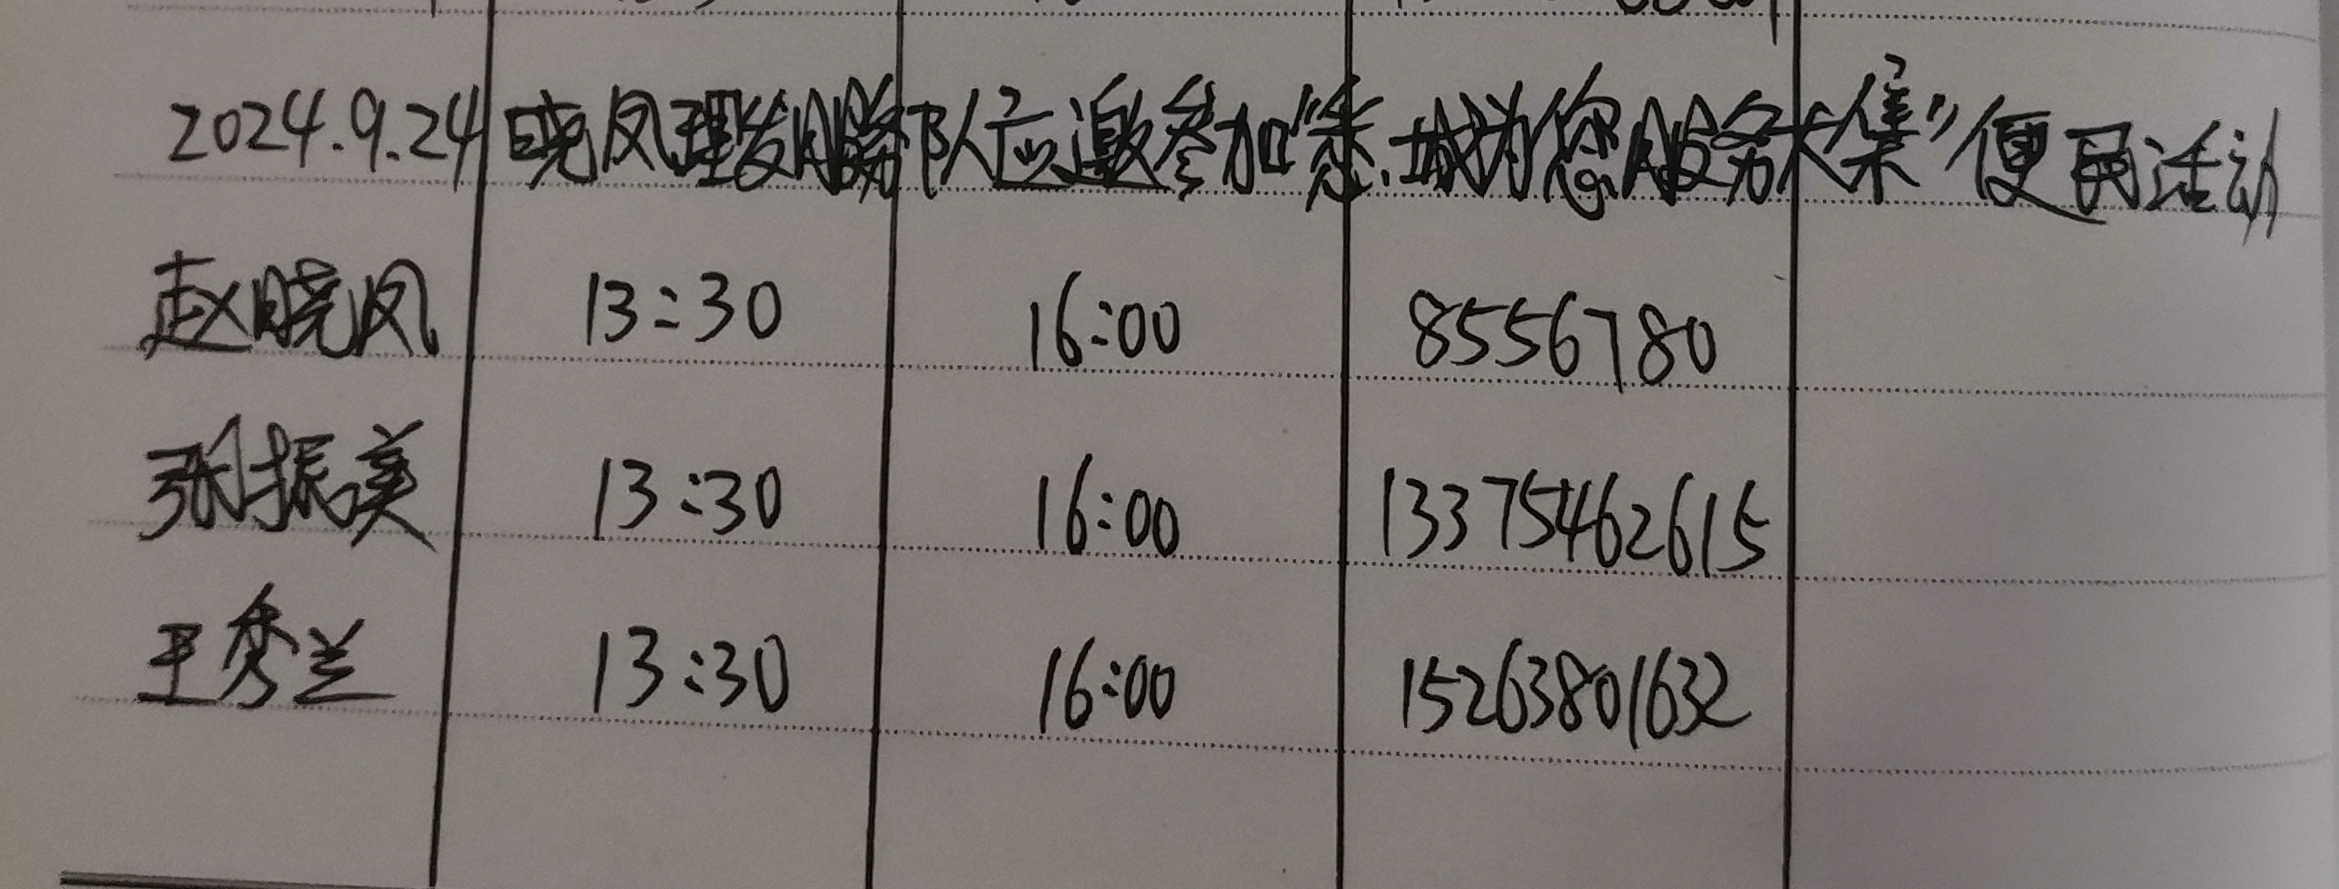 2024.9.24 晓凤理发服务队应邀参加"悉.城为您服务大集"便民活动
赵晓凤 13:30 16:00 8556780
张振美 13:30 16:00 13375462615
王秀兰 13:30 16:00 15263801632